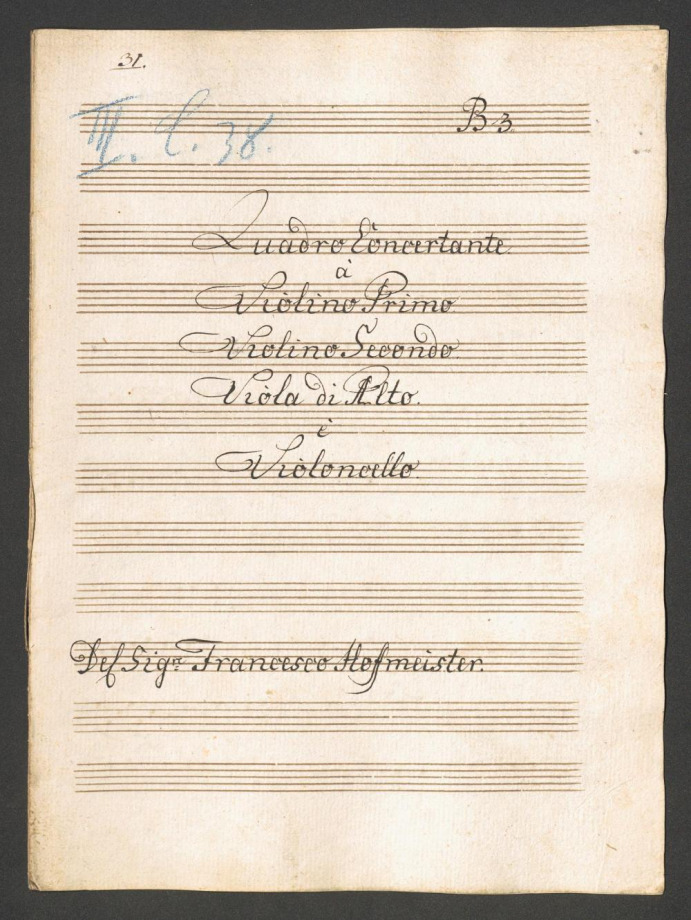 31.
B 3.
III. C. 38.
Quadro Concertante
à
Violino Primo
Violino Secondo
Viola di Alto.
è
Violoncello.
Del Sigre Francesco Hofmeister.